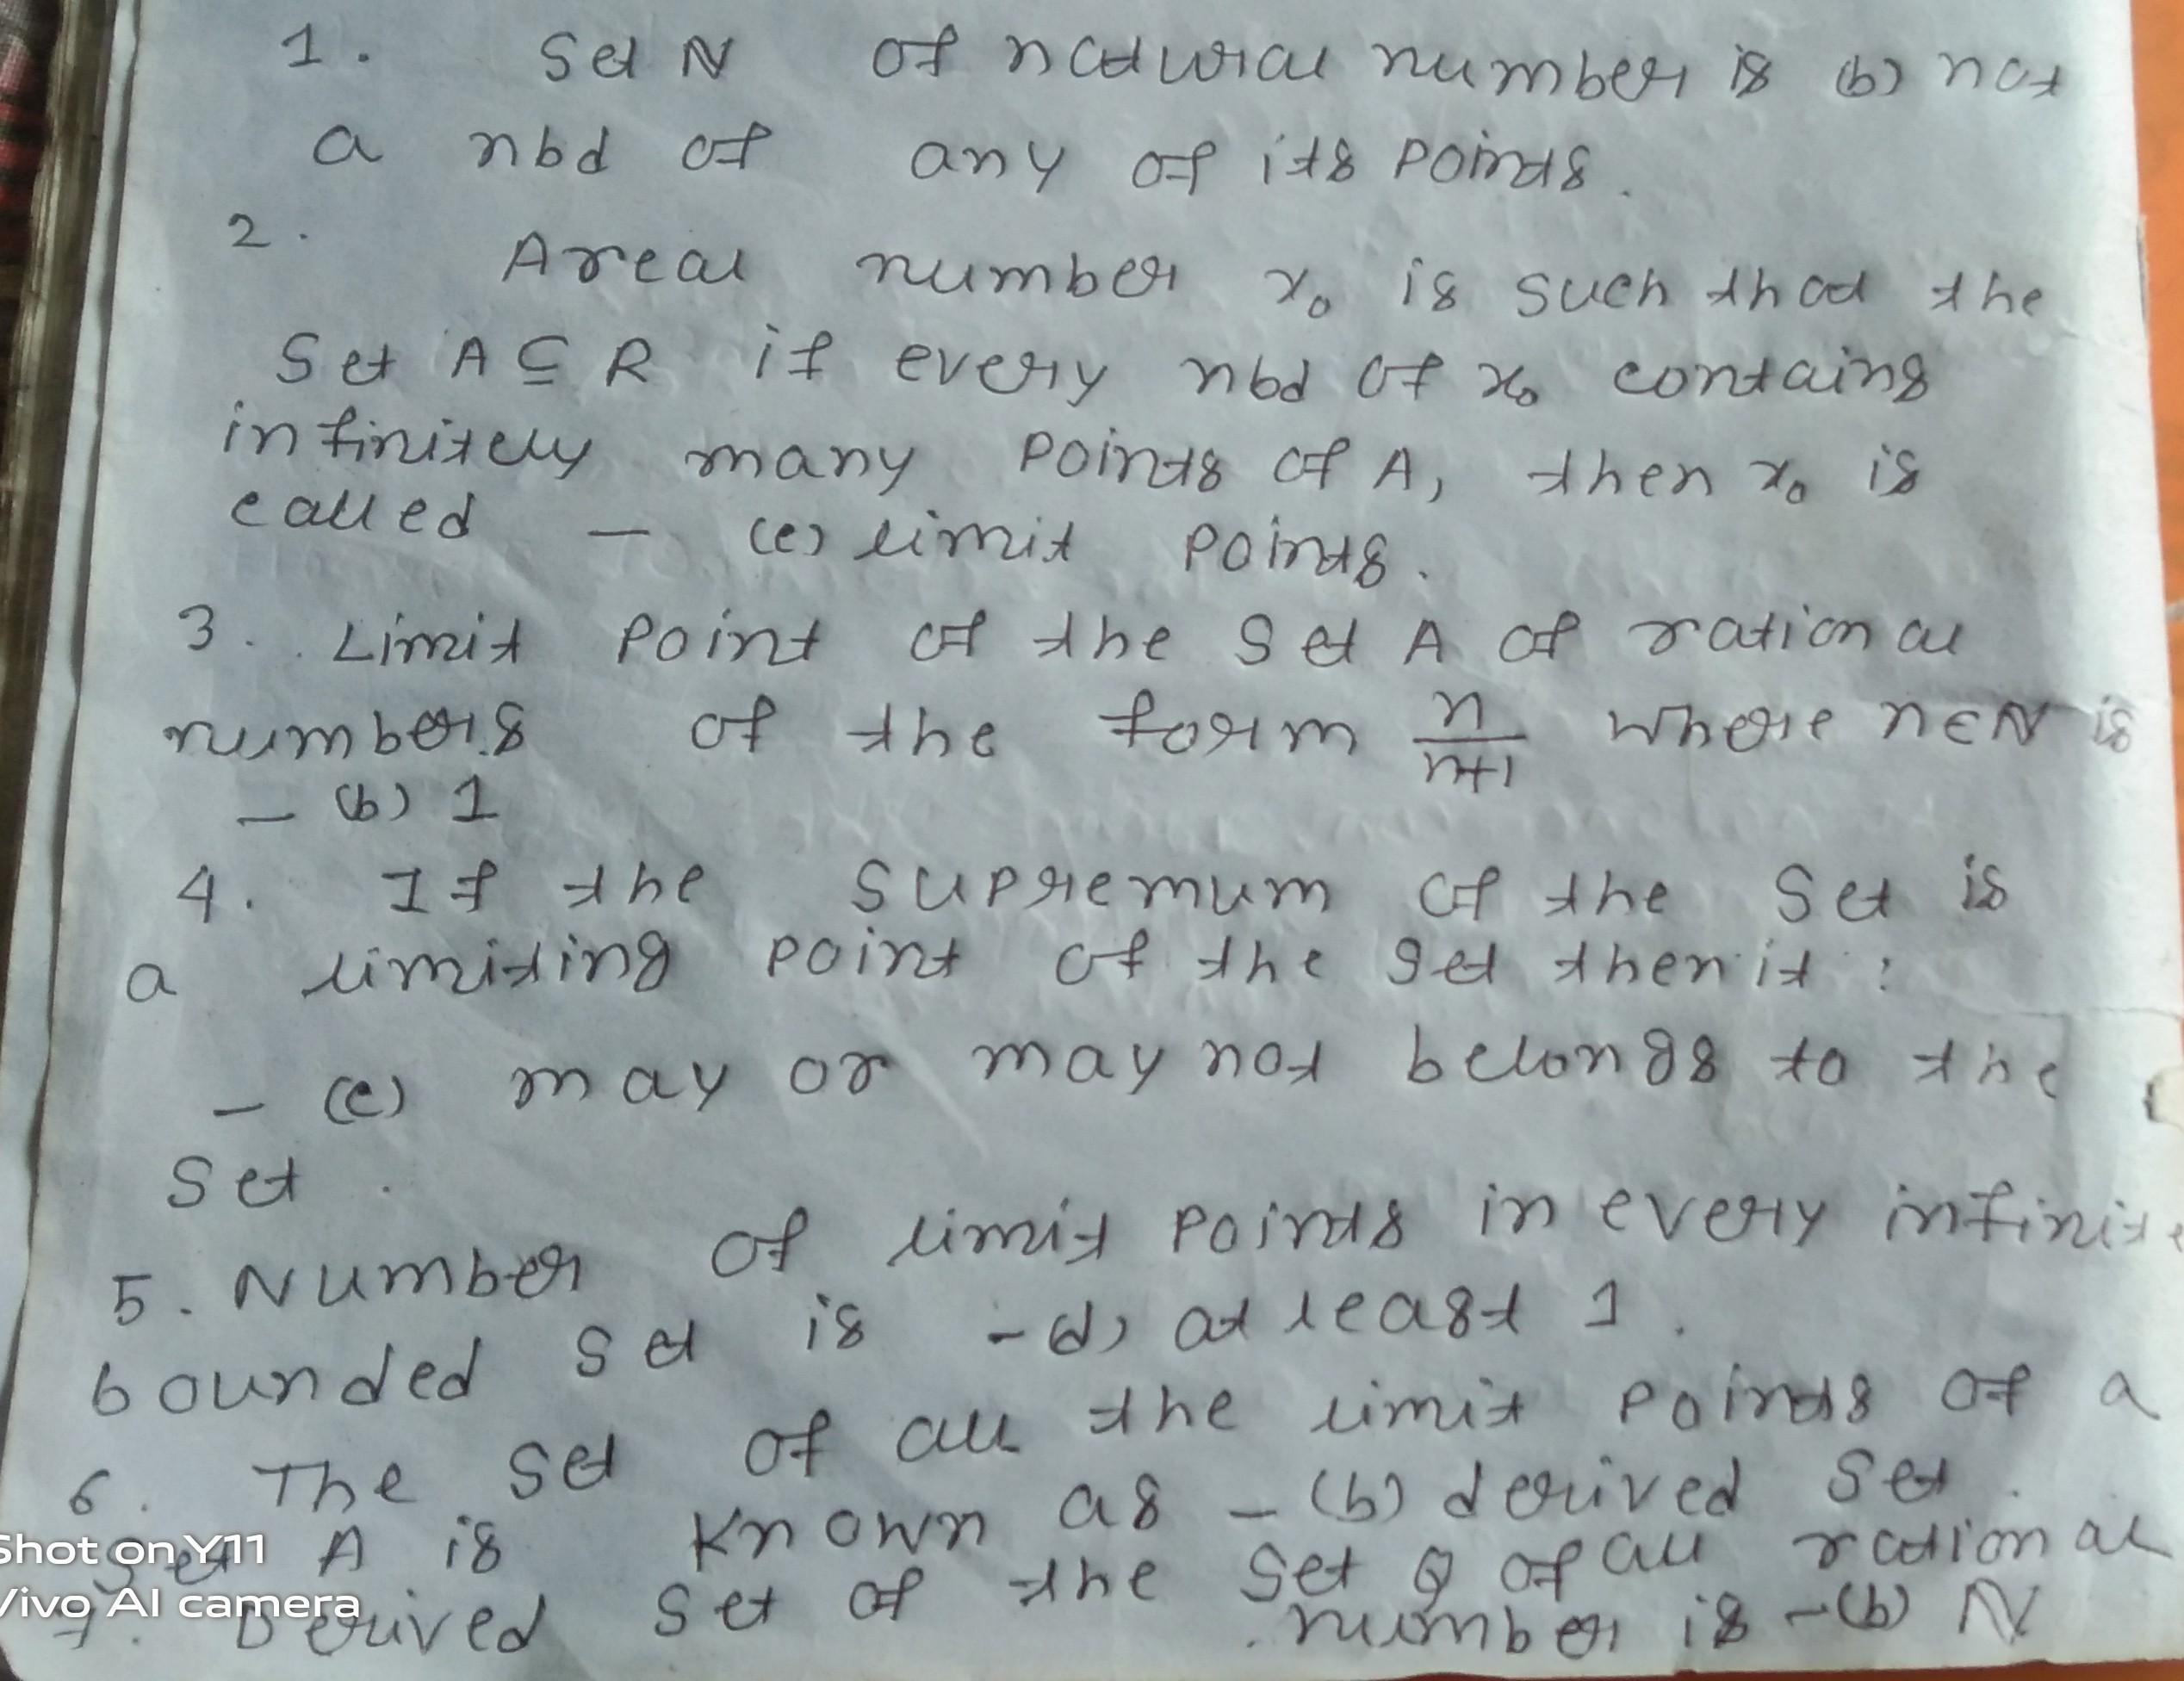 1. Set N of natural number is (b) not
a nbd of any of its points.
2. A real number x₀ is such that the
Set A ⊆ R if every nbd of x₀ contains
infinitely many points of A, then x₀ is
called - (c) limit points.
3. Limit point of the set A of rational
numbers of the form n/n+1 where n∈N is
- (b) 1
4. If the supremum of the set is
a limiting point of the set then it :
- (c) may or may not belongs to the
Set.
5. Number of limit points in every infinite
bounded set is - (d) at least 1.
6. The set of all the limit points of a
set A is known as - (b) derived set.
7. Derived set of the set Q of all rational
number is - (b) N
Shot on Y11
Vivo AI camera